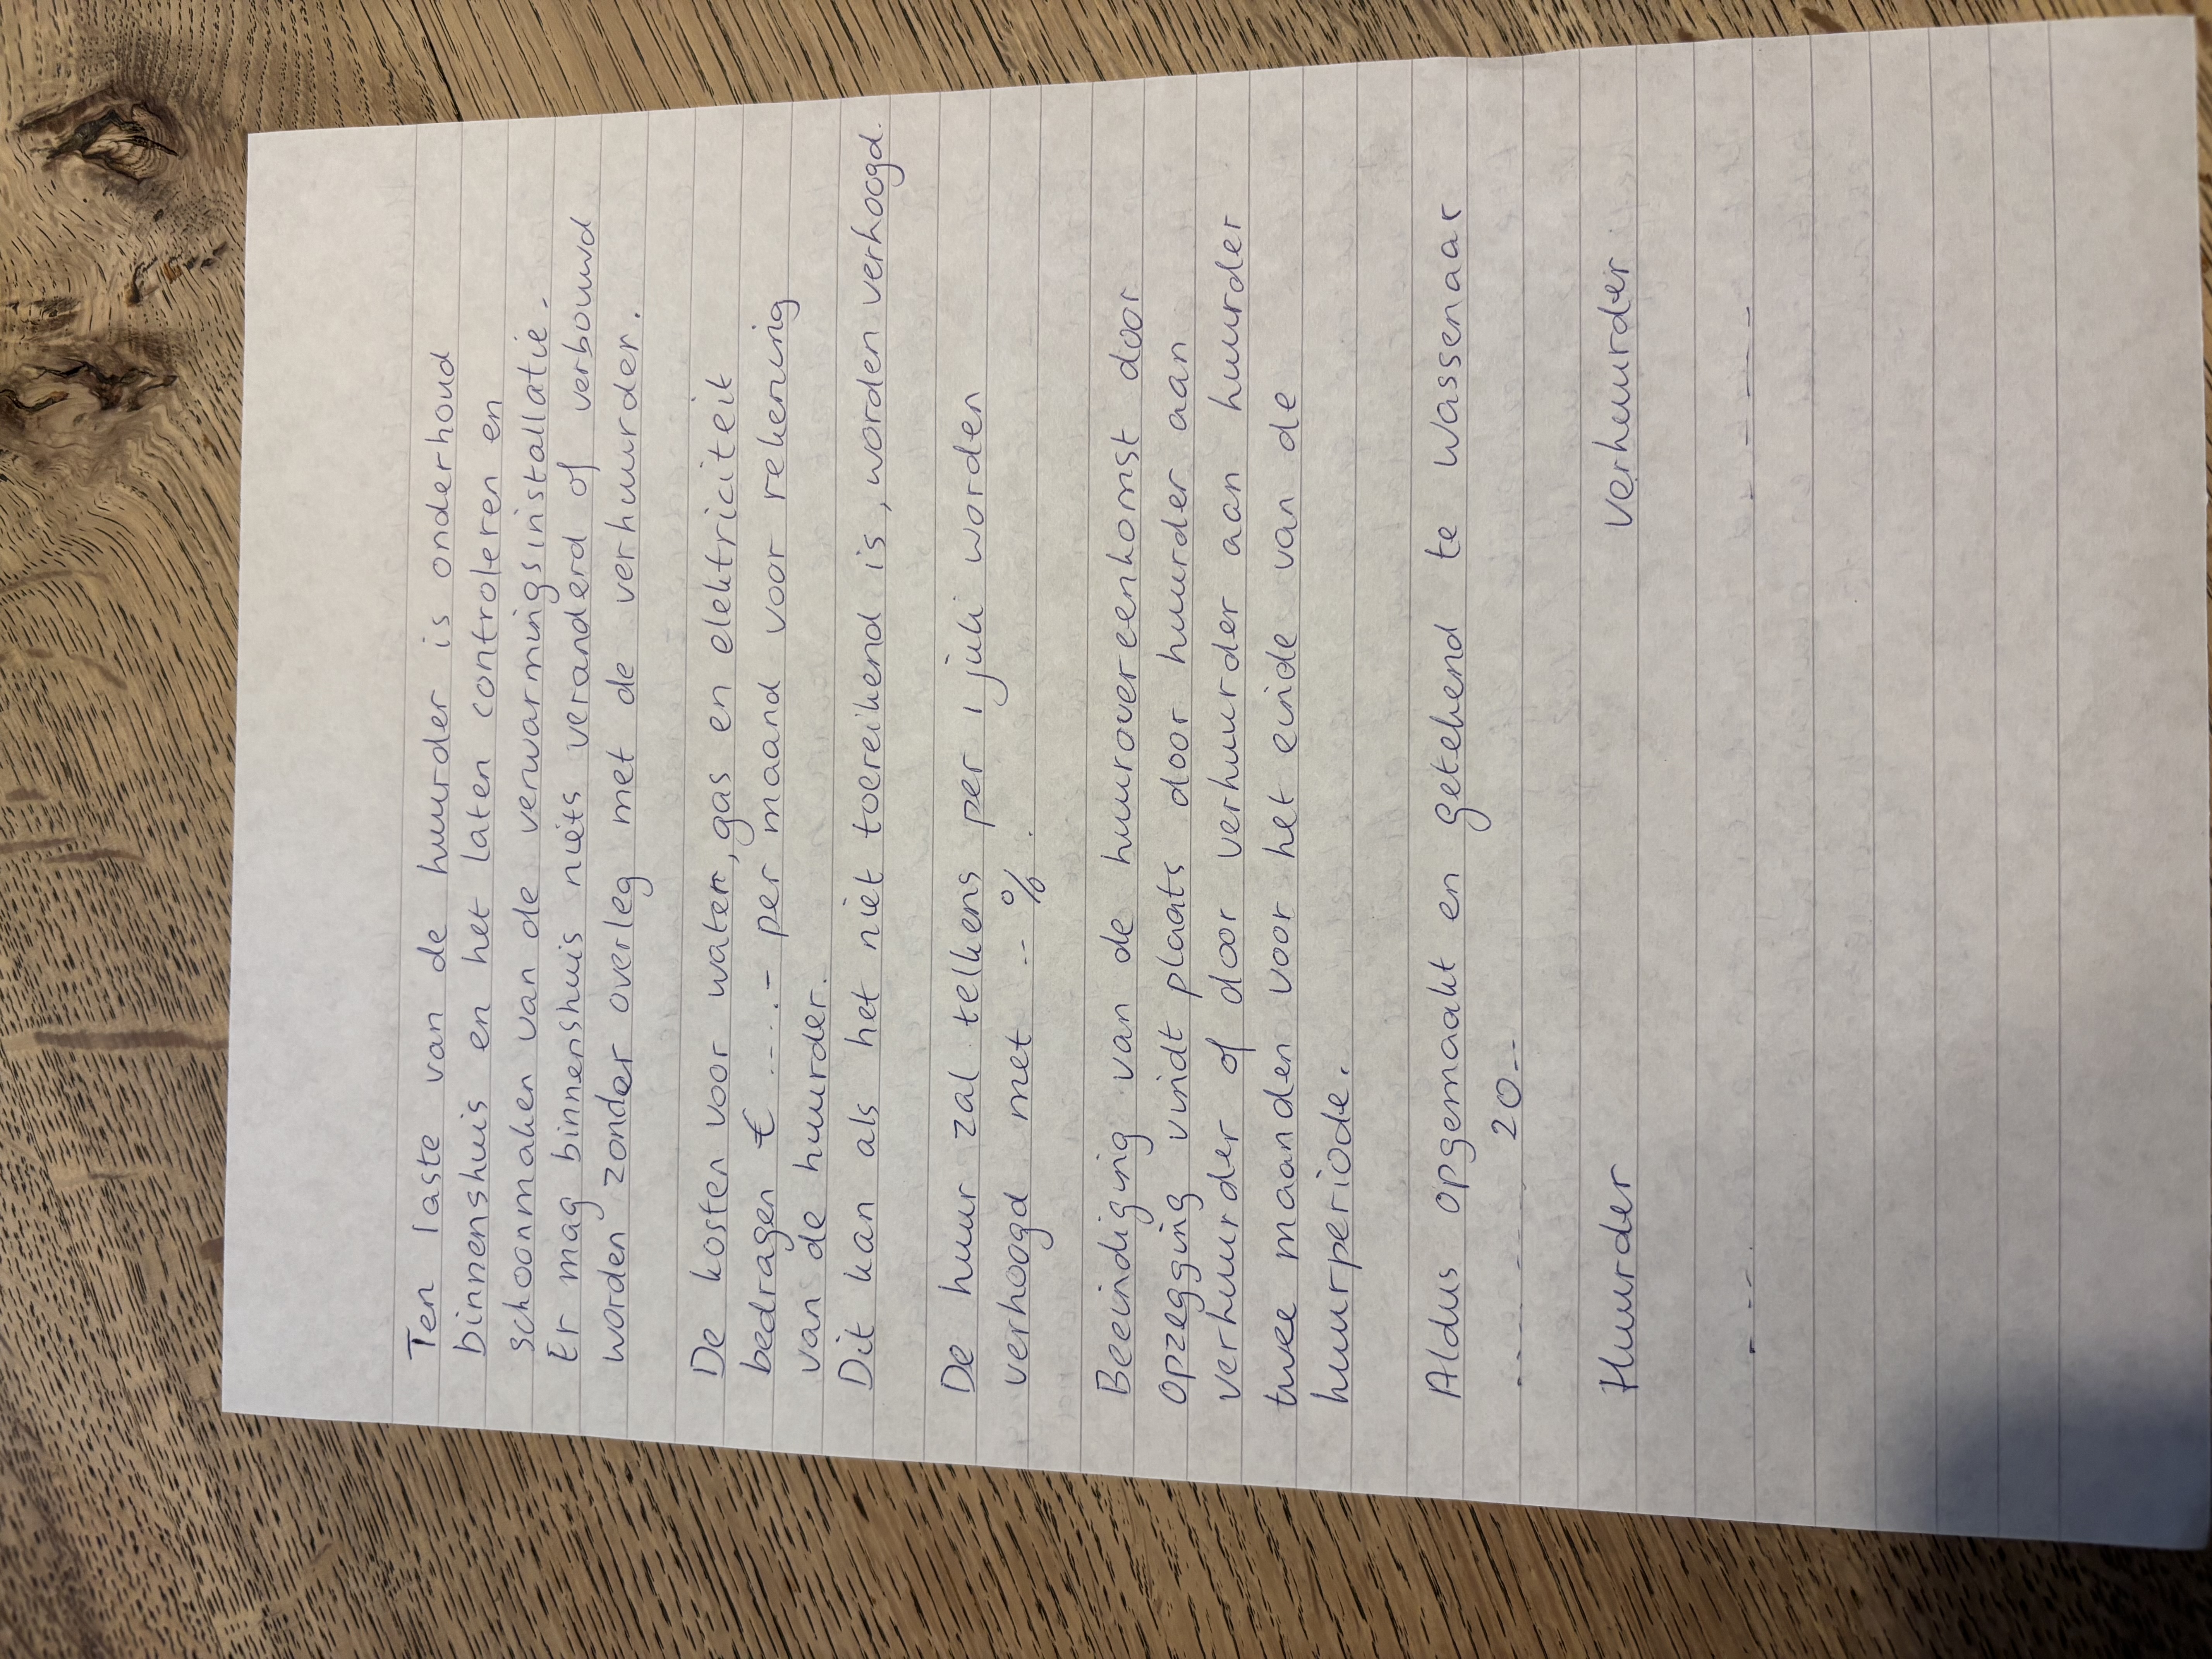 Ten laste van de huurder is onderhoud
binnenshuis en het laten controleren en
schoonmaken van de verwarmingsinstallatie.
Er mag binnenshuis niets veranderd of verbouwd
worden zonder overleg met de verhuurder.
De kosten voor water, gas en elektriciteit
bedragen € ....- per maand voor rekening
van de huurder.
Dit kan als het niet toereikend is, worden verhoogd.
De huur zal telkens per 1 juli worden
verhoogd met .. %.
Beeindiging van de huurovereenkomst door
opzegging vindt plaats door huurder aan
verhuurder of door verhuurder aan huurder
twee maanden voor het einde van de
huurperiode.
Aldus opgemaakt en getekend te Wassenaar
..... 20..
Huurder verhuurder
... .....